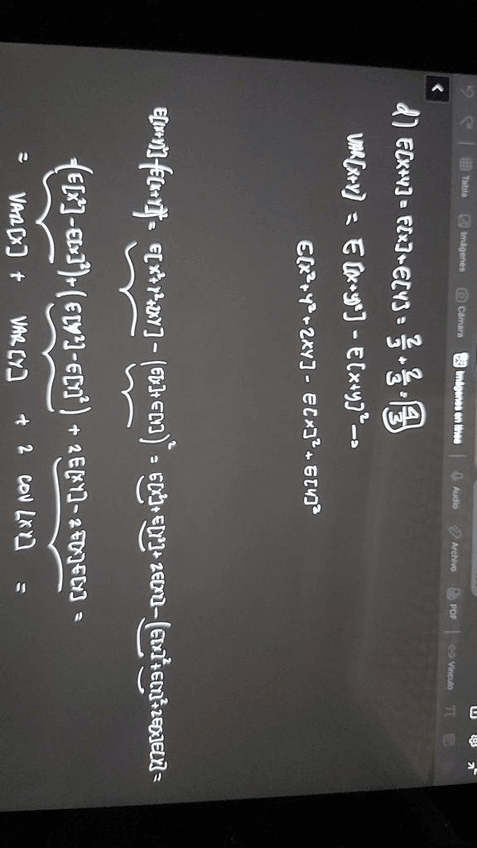 Tabla Imágenes Cámara Imágenes en línea Audio Archivo PDF Vínculo
d) E[X+Y] = E[X] + E[Y] = 2/3 + 2/3 = 4/3
VAR[X+Y] = E[X+Y²] - E[X+Y]² →
E[X²+Y²+2XY] - E[X]² + E[Y]²
E[(X+Y)²] - (E[X+Y])² = E[X²+Y²+2XY] - (E[X]+E[Y])² = E[X²]+E[Y²]+2E[XY] - (E[X]²+E[Y]²+2E[X]E[Y]) =
= (E[X²] - E[X]²) + (E[Y²] - E[Y]²) + 2E[XY] - 2E[X]E[Y] =
= VAR[X] + VAR[Y] + 2 COV[XY] =